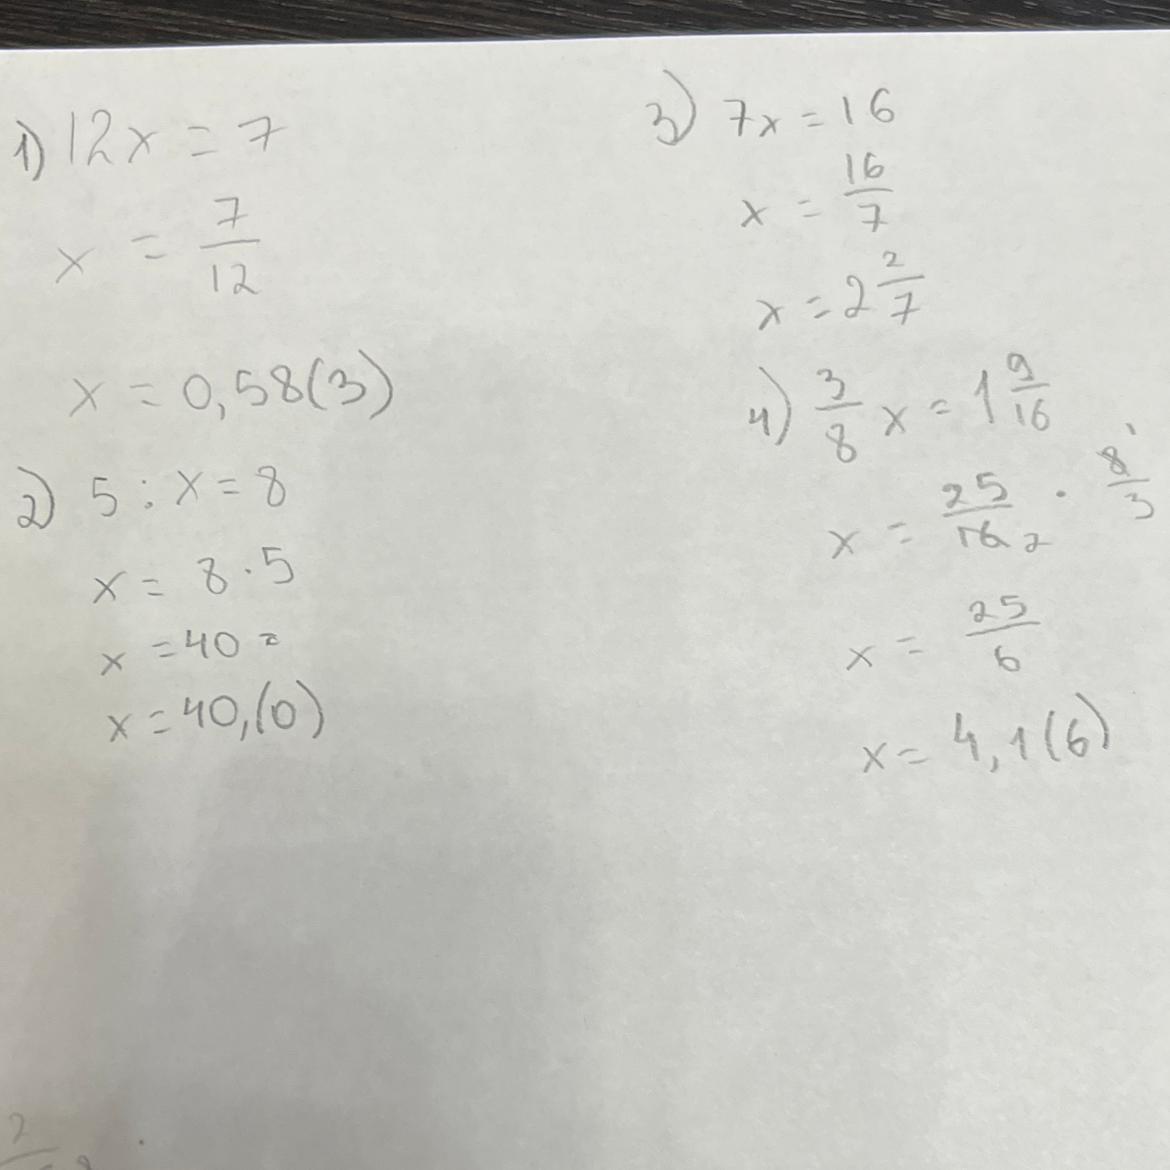 1) 12x = 7
x = 7/12
x = 0,58(3)
2) 5 : x = 8
x = 8 · 5
x = 40 =
x = 40,(0)
3) 7x = 16
x = 16/7
x = 2 2/7
4) 3/8 x = 1 9/16
x = 25/16 2 · 8 1/3
x = 25/6
x = 4,1(6)
2